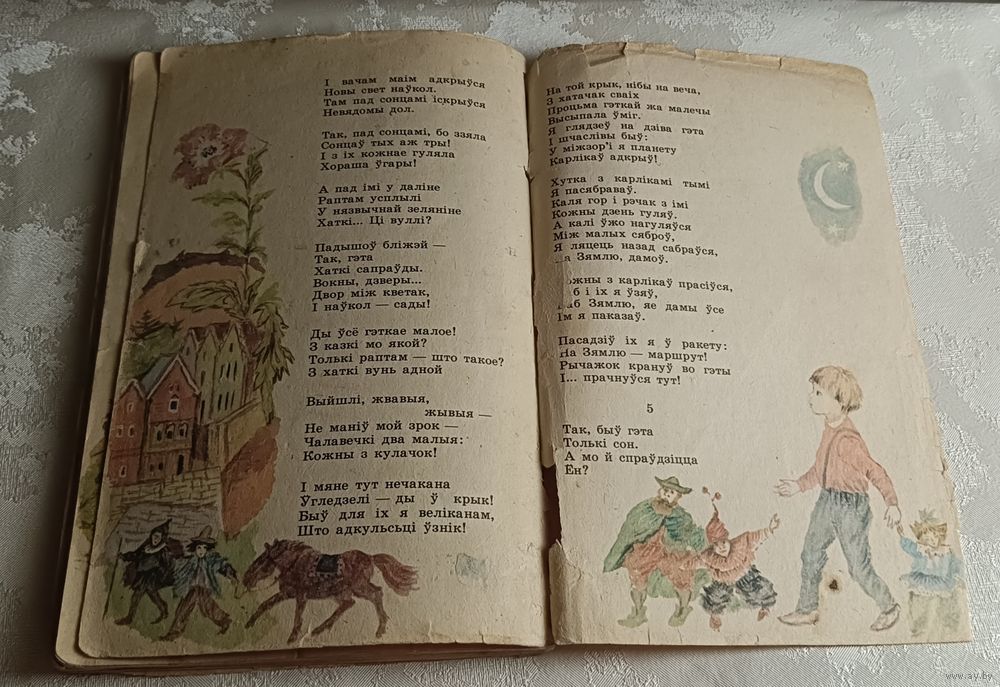 І вачам маім адкрыўся
Новы свет наўкол.
Там пад сонцамі іскрыўся
Невядомы дол.
Так, пад сонцамі, бо ззяла
Сонцаў тых аж тры!
І з іх кожнае гуляла
Хораша ўгары!
А пад імі у даліне
Раптам усплылі
У нязвычнай зеляніне
Хаткі... Ці вуллі?
Падышоў бліжэй —
Так, гэта
Хаткі сапраўды.
Вокны, дзверы...
Двор між кветак,
І наўкол — сады!
Ды ўсё гэткае малое!
З казкі мо якой?
Толькі раптам — што такое?
З хаткі вунь адной
Выйшлі, жвавыя,
жывыя —
Не маніў мой зрок —
Чалавечкі два малыя:
Кожны з кулачок!
І мяне тут нечакана
Угледзелі — ды ў крык!
Быў для іх я веліканам,
Што адкульсьці ўзнік!
На той крык, нібы на веча,
З хатачак сваіх
Процьма гэткай жа малечы
Высыпала ўміг.
Я глядзеў на дзіва гэта
І шчаслівы быў:
У міжзор'і я планету
Карлікаў адкрыў!
Хутка з карлікамі тымі
Я пасябраваў.
Каля гор і рэчак з імі
Кожны дзень гуляў.
А калі ўжо нагуляўся
Між малых сяброў,
Я ляцець назад сабраўся,
На Зямлю, дамоў.
Кожны з карлікаў прасіўся,
б і іх я ўзяў,
Каб Зямлю, яе дамы ўсе
Ім я паказаў.
Пасадзіў іх я ў ракету:
На Зямлю — маршрут!
Рычажок крануў во гэты
І... прачнуўся тут!
5
Так, быў гэта
Толькі сон.
А мо й спраўдзіцца
Ён?
www.ay.by